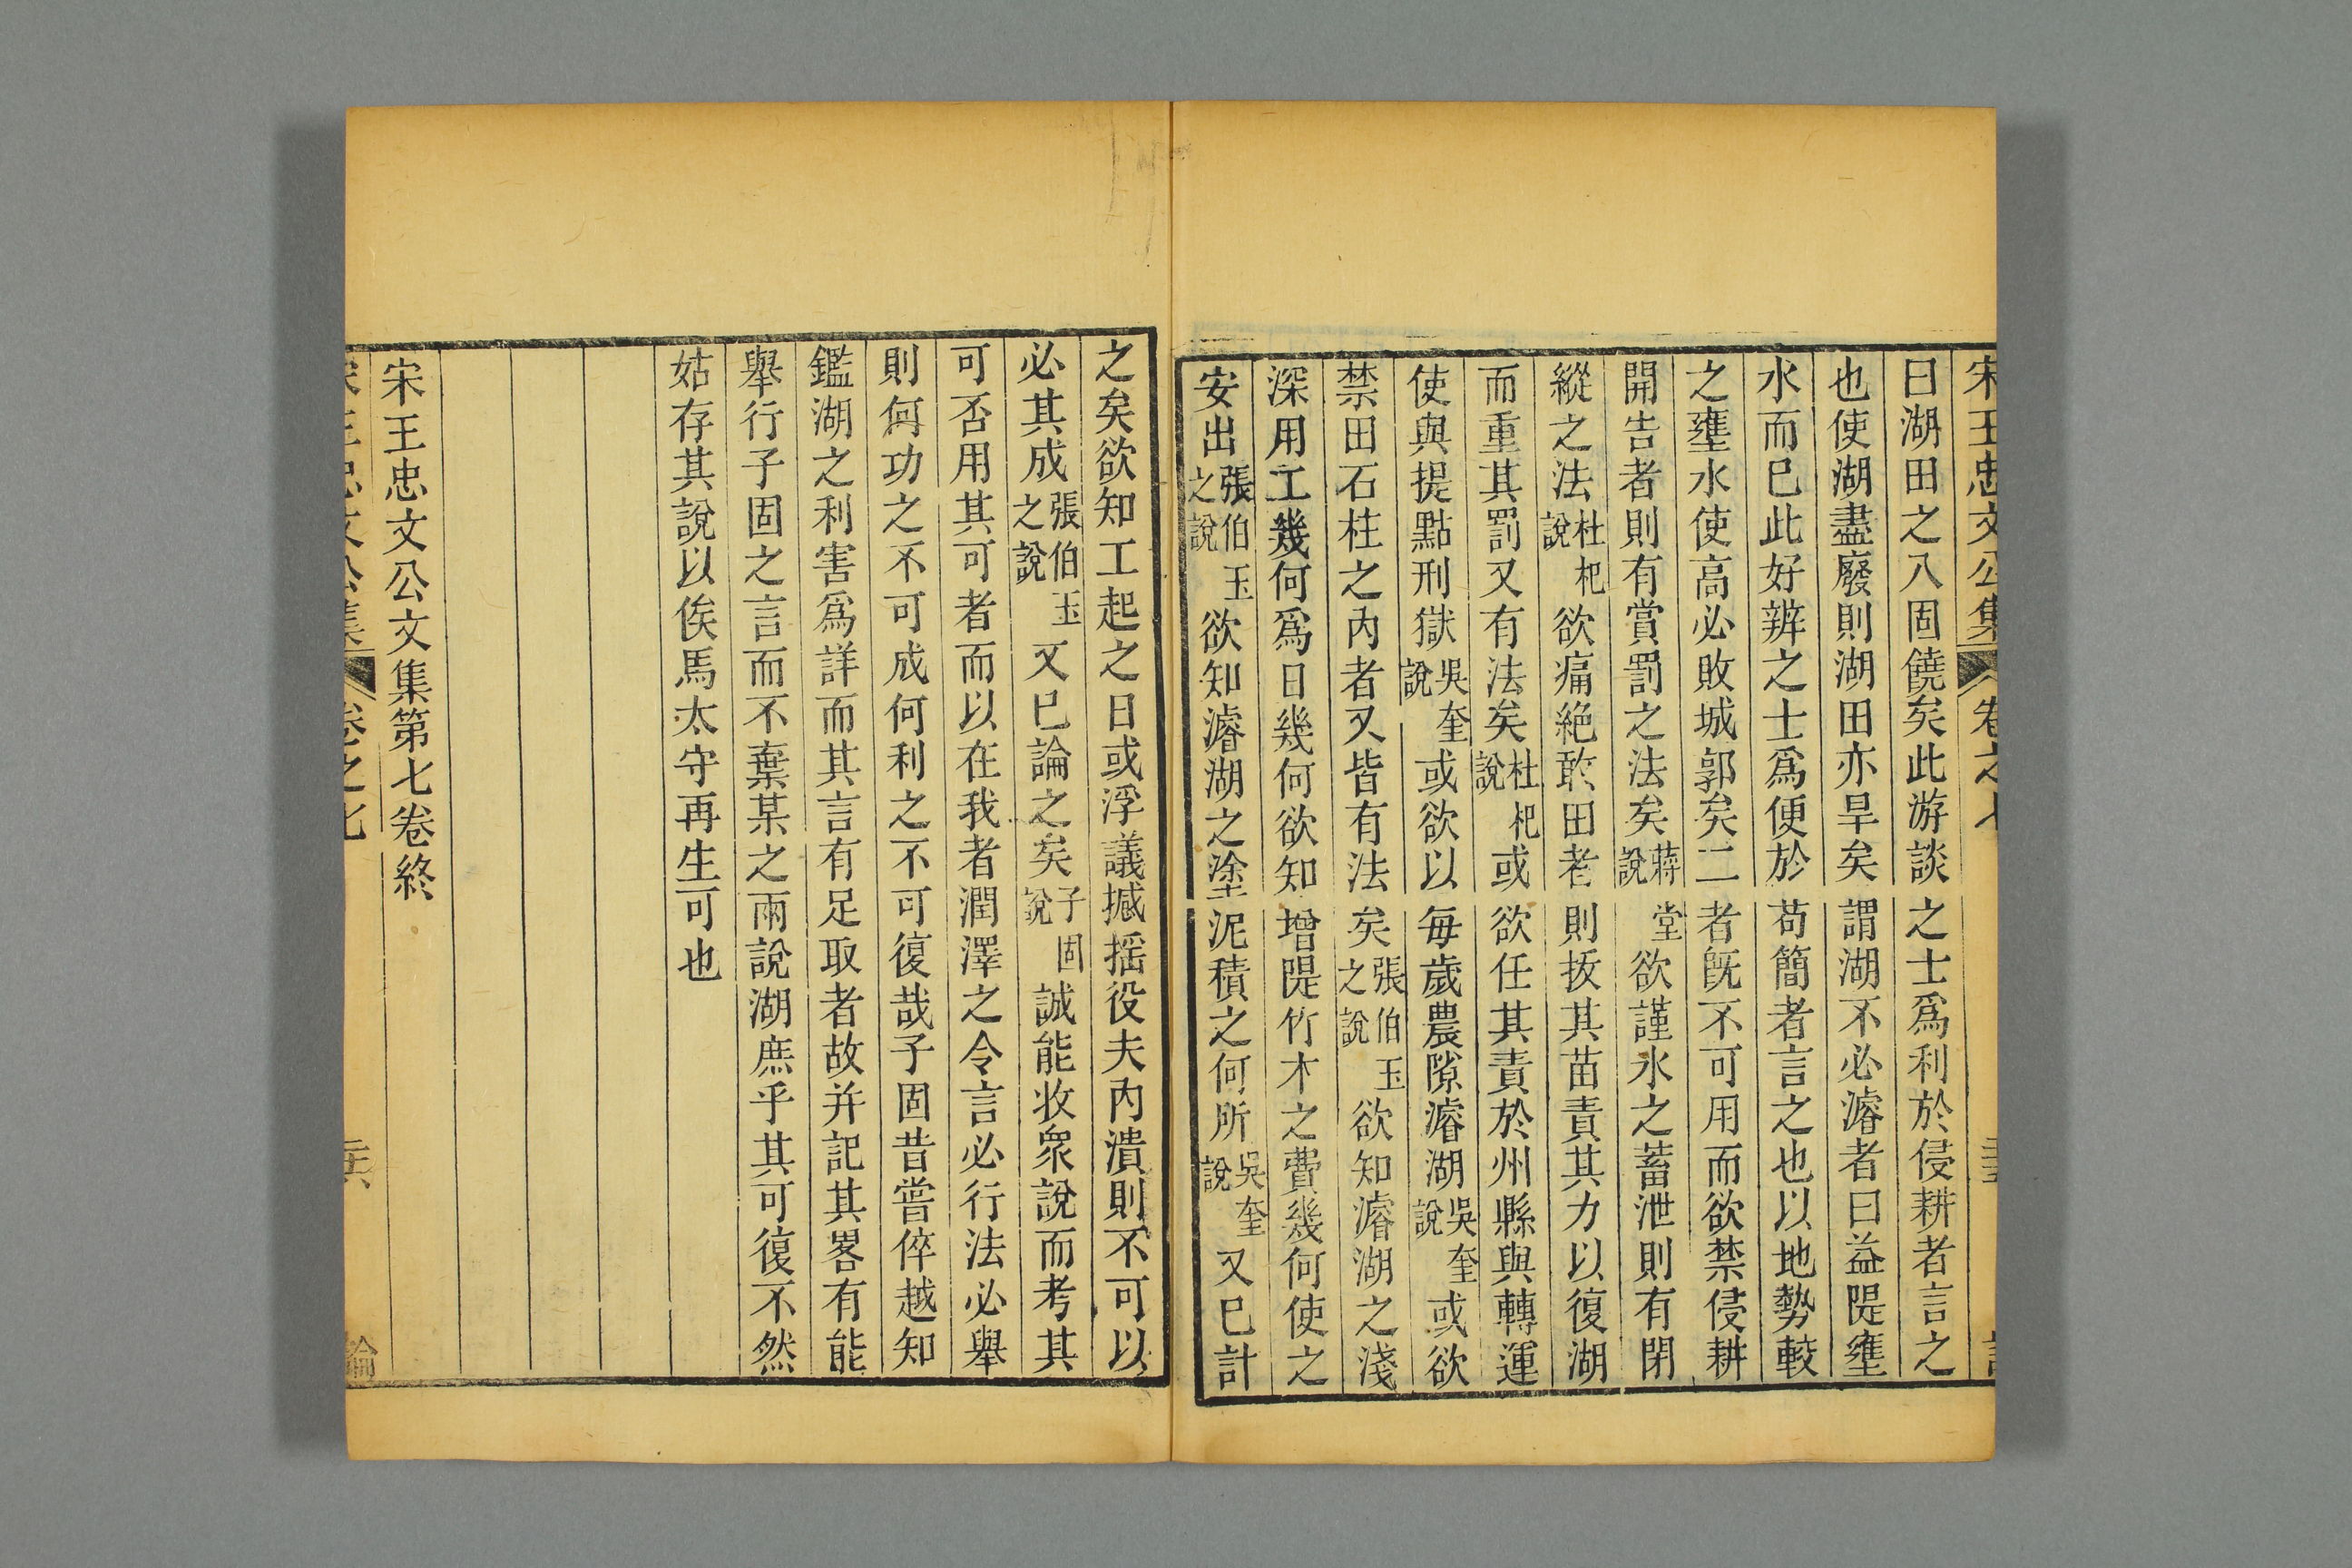 宋王忠文公集 卷之七
曰湖田之入固饒矣此游談之士爲利於侵耕者言之
也使湖盡廢則湖田亦旱矣謂湖不必濬者曰益隄壅
水而巳此好辨之士爲便於苟簡者言之也以地勢較
之壅水使高必敗城郭矣二者旣不可用而欲禁侵耕
開告者則有賞罰之法矣蔣堂說欲謹水之蓄泄則有閉
縱之法杜杞說欲痛絶敢田者則拔其苗責其力以復湖
而重其罰又有法矣杜杞說或欲任其責於州縣與轉運
使與提點刑獄吳奎說或欲以每歲農隙濬湖吳奎說或欲
禁田石柱之內者又皆有法矣張伯玉之說欲知濬湖之淺
深用工幾何爲日幾何欲知增隄竹木之費幾何使之
安出張伯玉之說欲知濬湖之塗泥積之何所吳奎說又巳計
之矣欲知工起之日或浮議撼摇役夫內潰則不可以
必其成張伯玉之說又巳論之矣子固說誠能收衆說而考其
可否用其可者而以在我者潤澤之令言必行法必舉
則何功之不可成何利之不可復哉子固昔嘗倅越知
鑑湖之利害爲詳而其言有足取者故并記其畧有能
舉行子固之言而不棄某之兩說湖庶乎其可復不然
姑存其說以俟馬太守再生可也
宋王忠文公文集第七卷終
宋王忠文公集 卷之七 論